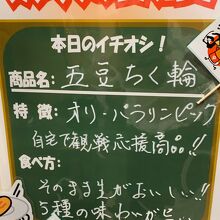 本日のイチオシ!
商品名: 五豆ちく輪
特徴: オリ・パラリンピック
自宅で観戦応援商品!!
食べ方:
そのまま生がおいしい!!
5種の味わいが